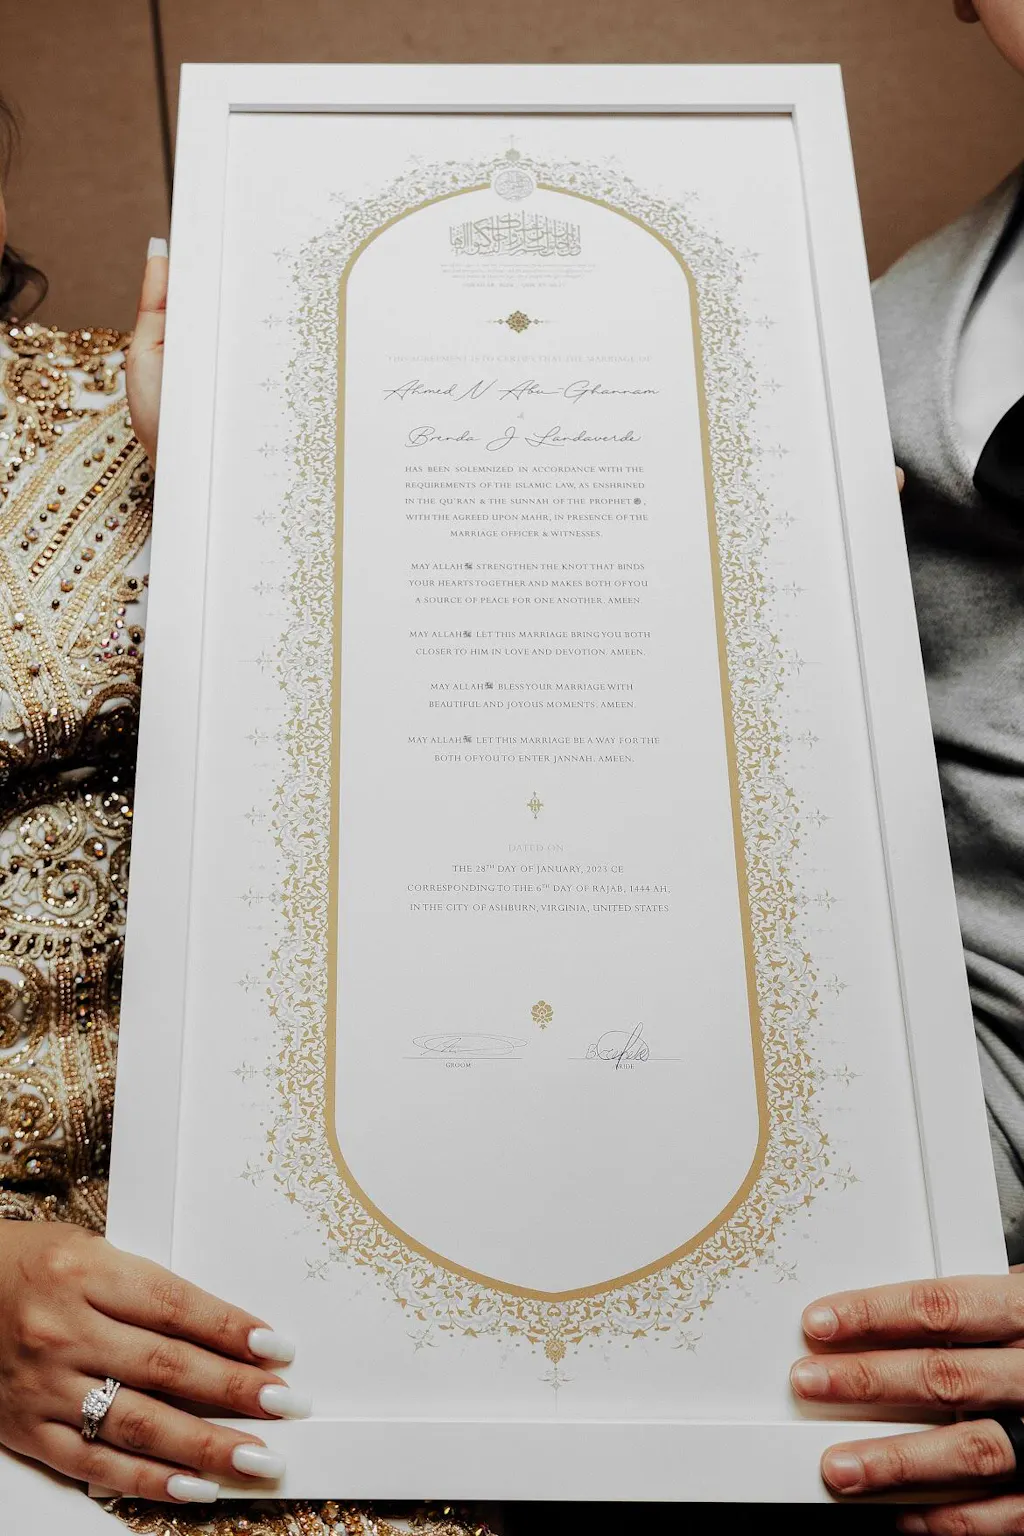 THIS AGREEMENT IS TO CERTIFY THAT THE MARRIAGE OF
Ahmed N Abu-Ghannam
&
Brenda J Landaverde
HAS BEEN SOLEMNIZED IN ACCORDANCE WITH THE
REQUIREMENTS OF THE ISLAMIC LAW, AS ENSHRINED
IN THE QU'RAN & THE SUNNAH OF THE PROPHET ﷺ,
WITH THE AGREED UPON MAHR, IN PRESENCE OF THE
MARRIAGE OFFICER & WITNESSES.
MAY ALLAH STRENGTHEN THE KNOT THAT BINDS
YOUR HEARTS TOGETHER AND MAKES BOTH OF YOU
A SOURCE OF PEACE FOR ONE ANOTHER. AMEEN.
MAY ALLAH LET THIS MARRIAGE BRING YOU BOTH
CLOSER TO HIM IN LOVE AND DEVOTION. AMEEN.
MAY ALLAH BLESS YOUR MARRIAGE WITH
BEAUTIFUL AND JOYOUS MOMENTS. AMEEN.
MAY ALLAH LET THIS MARRIAGE BE A WAY FOR THE
BOTH OF YOU TO ENTER JANNAH. AMEEN.
DATED ON
THE 28TH DAY OF JANUARY, 2023 CE
CORRESPONDING TO THE 6TH DAY OF RAJAB, 1444 AH,
IN THE CITY OF ASHBURN, VIRGINIA, UNITED STATES
GROOM
BRIDE